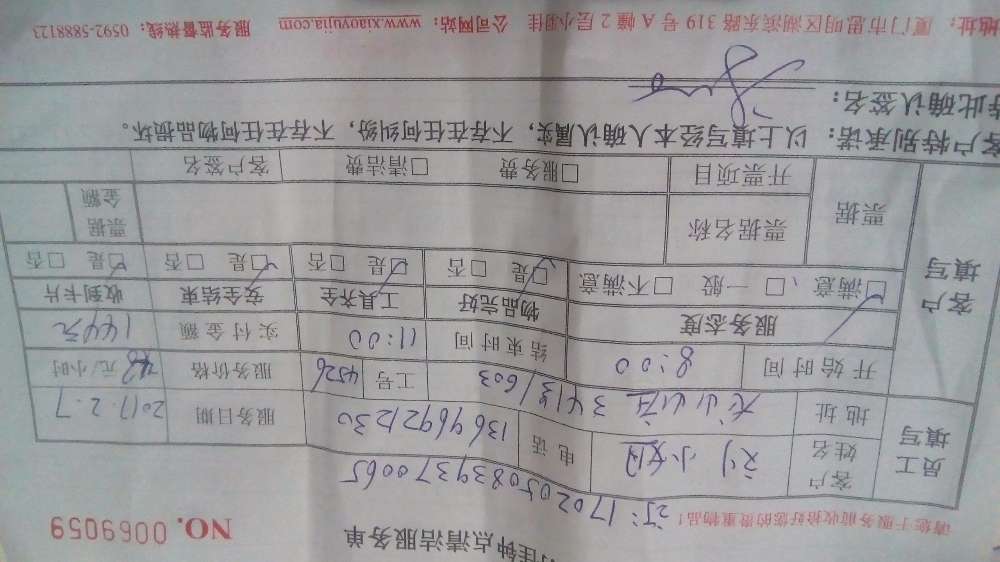 佳钟点清洁服务单
请您于服务前收拾好您的贵重物品!
NO. 0069059
订:1702050839370065
员工填写
客户姓名 刘小姐 电话 13696921230 服务日期 2017.2.7
地址 龙山山庄 34号603 工号 4526 服务价格 48元/小时
客户填写
开始时间 8:00 结束时间 11:00 实付金额 144元
服务态度 物品完好 工具齐全 安全结束 收到卡片
☑满意、 □一般 □不满意 ☑是 □否 ☑是 □否 ☑是 □否 ☑是 □否
票据 票据名称 票据金额
开票项目 □服务费 □清洁费 客户签名
客户特别承诺:以上填写经本人确认属实,不存在任何纠纷,不存在任何物品损坏。
特此确认签名:
地址:厦门市思明区湖滨东路 319 号 A 幢 2 层小羽佳 公司网站:www.xiaoyujia.com 服务监督热线:0592-5888123